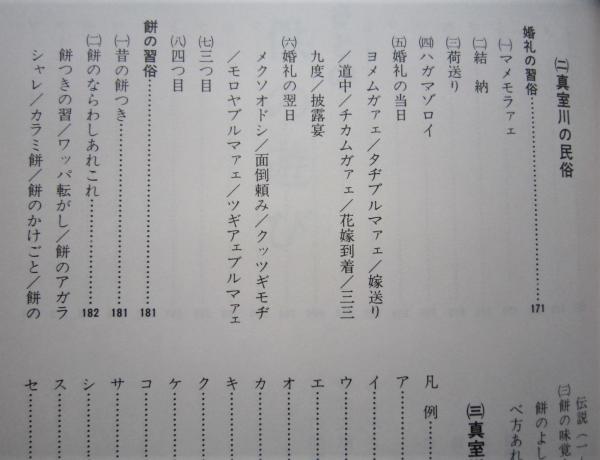 ㈡真室川の民俗
婚礼の習俗……………171
㈠マメモラァェ
㈡結納
㈢荷送り
㈣ハガマゾロイ
㈤婚礼の当日
ヨメムガァェ／タヂブルマァェ／嫁送り
／道中／チカムガァェ／花嫁到着／三三
九度／披露宴
㈥婚礼の翌日
メクソオドシ／面倒頼み／クッツギモヂ
／モロヤブルマァェ／ツギアェブルマァェ
㈦三つ目
㈧四つ目
餅の習俗……………181
㈠昔の餅つき……………181
㈡餅のならわしあれこれ……………182
餅つきの習／ワッパ転がし／餅のアガラ
シャレ／カラミ餅／餅のかけごと／餅の
伝説（一
㈢餅の味覚
餅のよし
べ方あれ
㈢真室
凡例……………
ア……………
イ……………
ウ……………
エ……………
オ……………
カ……………
キ……………
ク……………
ケ……………
コ……………
サ……………
シ……………
ス……………
セ……………